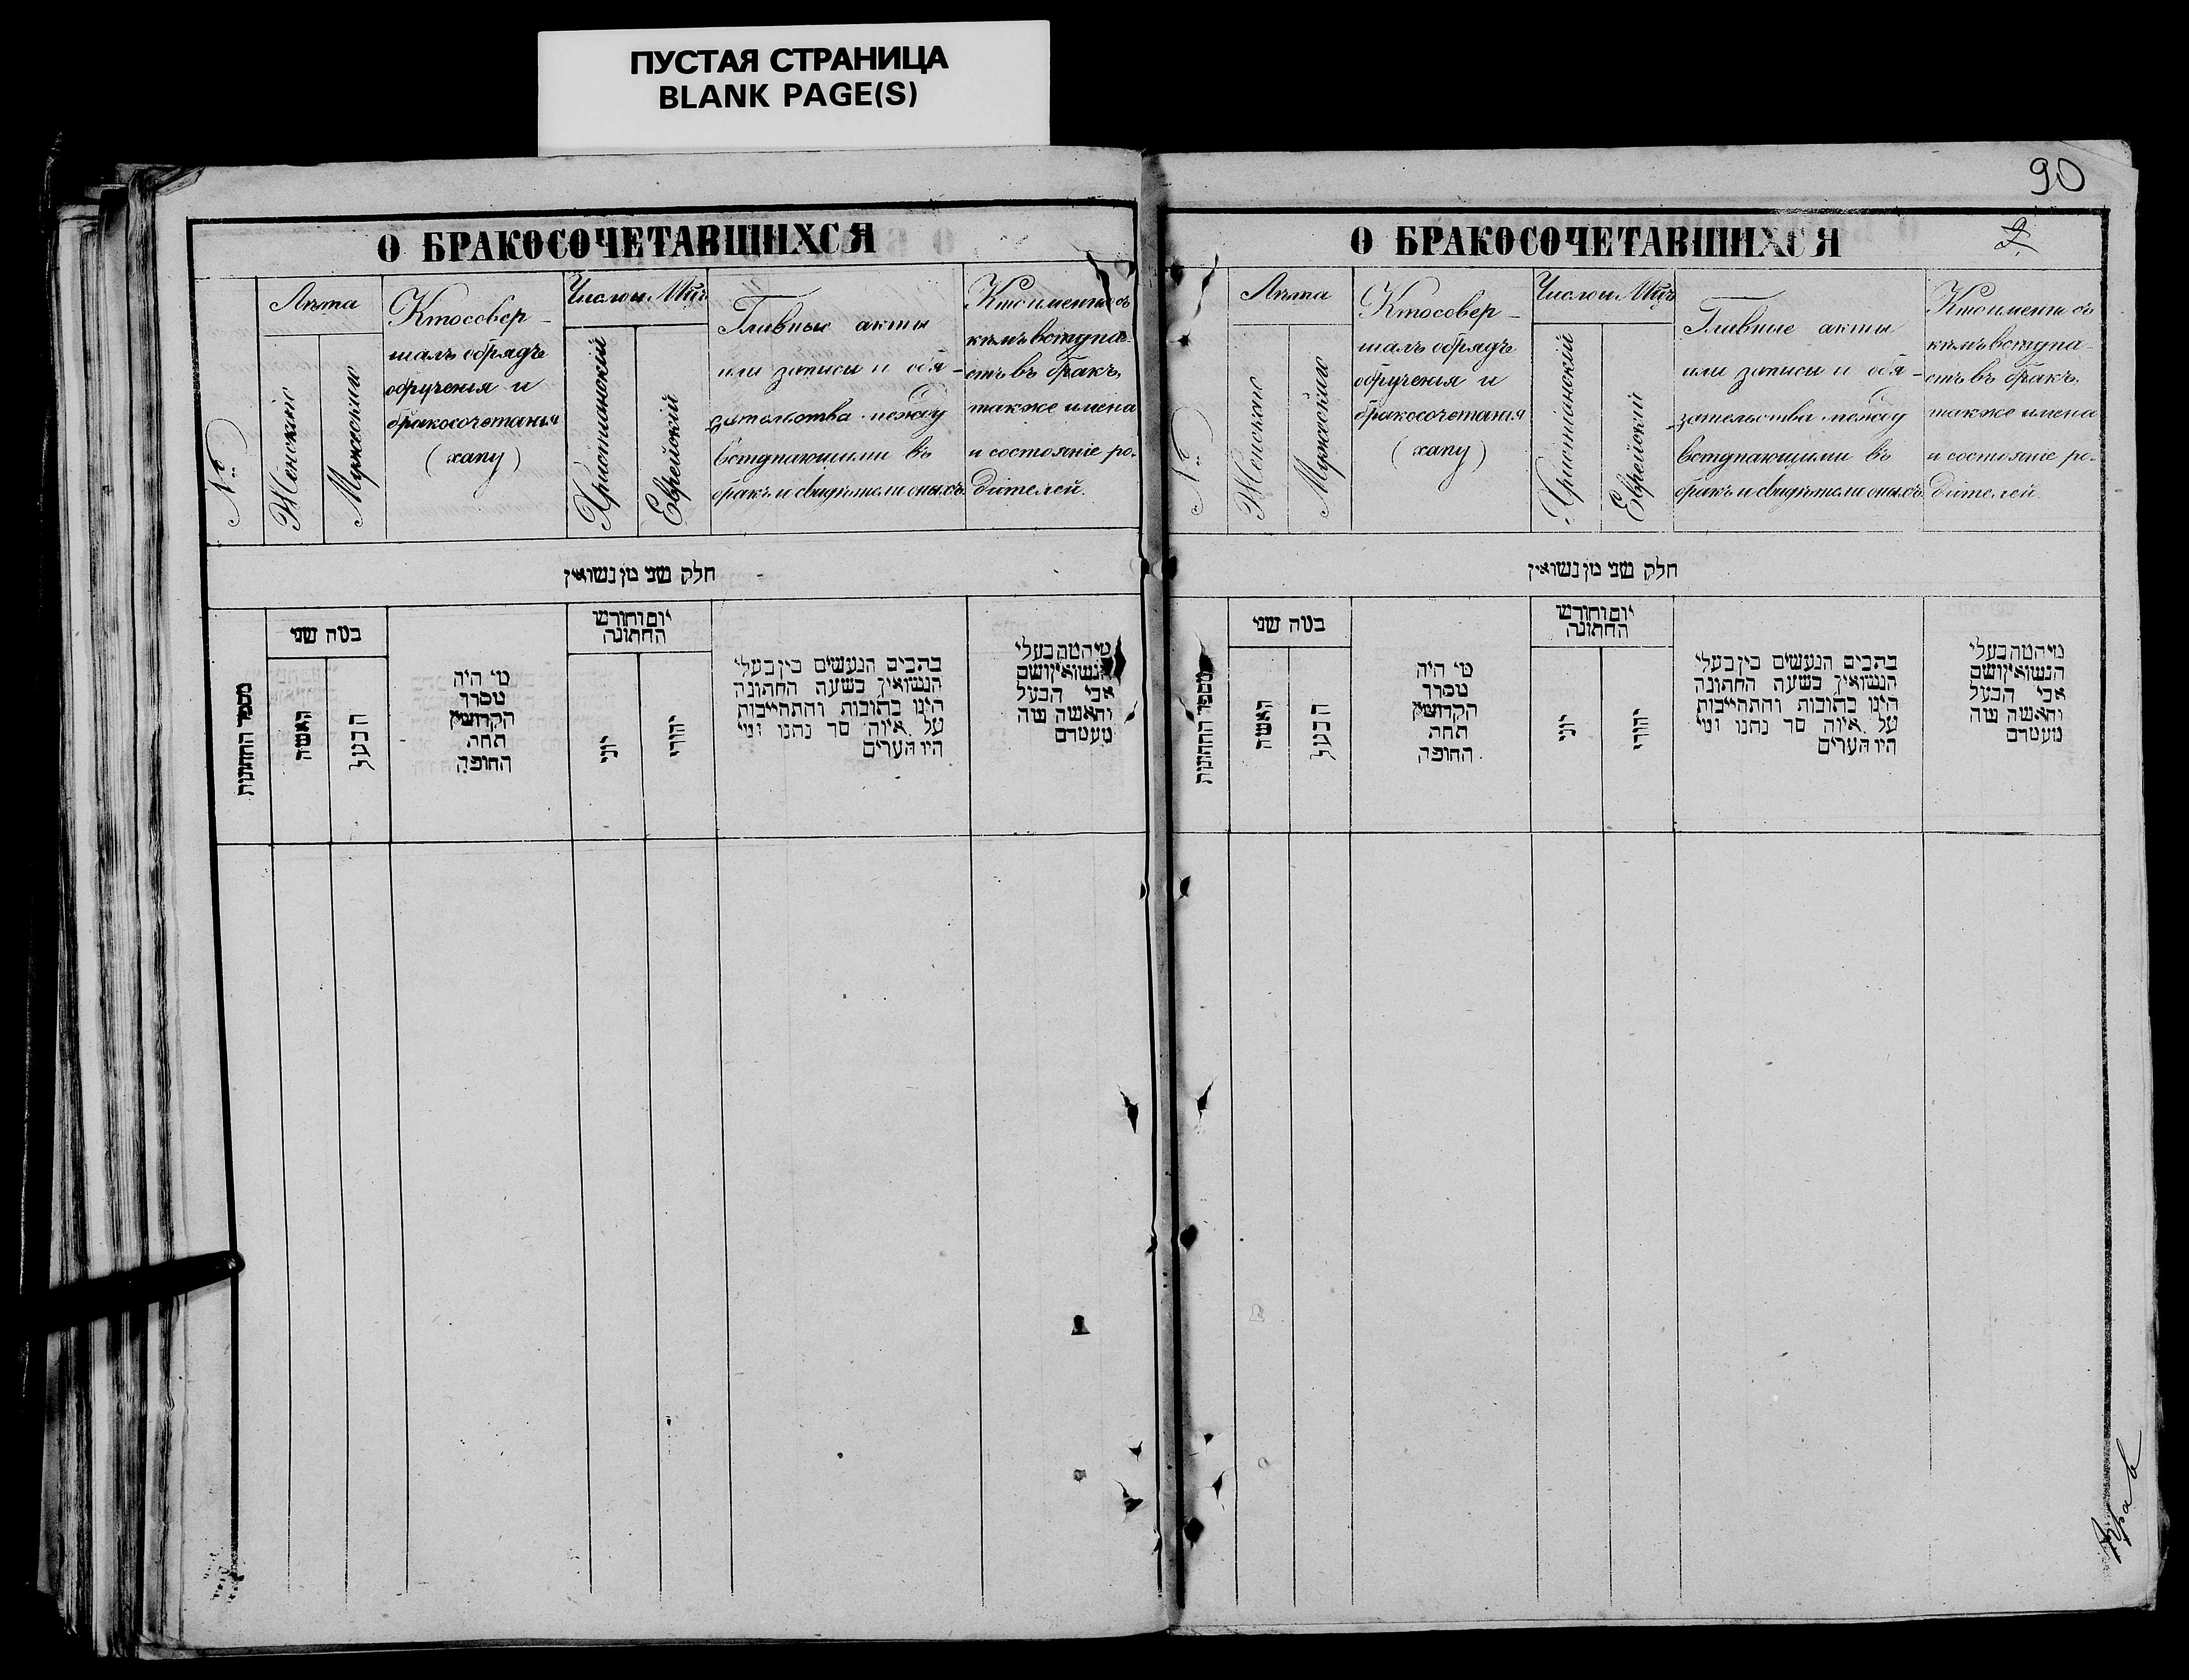 ПУСТАЯ СТРАНИЦА
BLANK PAGE(S)
О БРАКОСОЧЕТАВШИХСЯ
№
Лѣта
Женскаго
Мужескаго
Кто совер-
шалъ обрядъ
обрученія и
бракосочетанія
(хапу)
Число и Мцъ
Христіанскій
Еврейскій
Главные акты
или записи и обя-
зательства между
вступающими въ
бракъ и свидѣтели оныхъ
Кто именно съ
кѣмъ вступа-
етъ въ бракъ,
также имена
и состояніе ро-
дителей.
חלק שני מן נשואין
מספר החתונות
כמה שני
האשה
הבעל
מי היה
מסדר
הקדושין
תחת
החופה
יום וחודש
החתונה
יוני
יהודי
כתבים הנעשים בין בעלי
הנשואין בשעת החתונה
היינו כתובות והתחייבות
על איזה סך נתנו ומי
היו העדים
מי המה בעלי
הנשואין ושם
אבי הבעל
והאשה ומה
מעמדם
90
О БРАКОСОЧЕТАВШИХСЯ
№
Лѣта
Женскаго
Мужескаго
Кто совер-
шалъ обрядъ
обрученія и
бракосочетанія
(хапу)
Число и Мцъ
Христіанскій
Еврейскій
Главные акты
или записи и обя-
зательства между
вступающими въ
бракъ и свидѣтели оныхъ
Кто именно съ
кѣмъ вступа-
етъ въ бракъ,
также имена
и состояніе ро-
дителей.
חלק שני מן נשואין
מספר החתונות
כמה שני
האשה
הבעל
מי היה
מסדר
הקדושין
תחת
החופה
יום וחודש
החתונה
יוני
יהודי
כתבים הנעשים בין בעלי
הנשואין בשעת החתונה
היינו כתובות והתחייבות
על איזה סך נתנו ומי
היו העדים
מי המה בעלי
הנשואין ושם
אבי הבעל
והאשה ומה
מעמדם